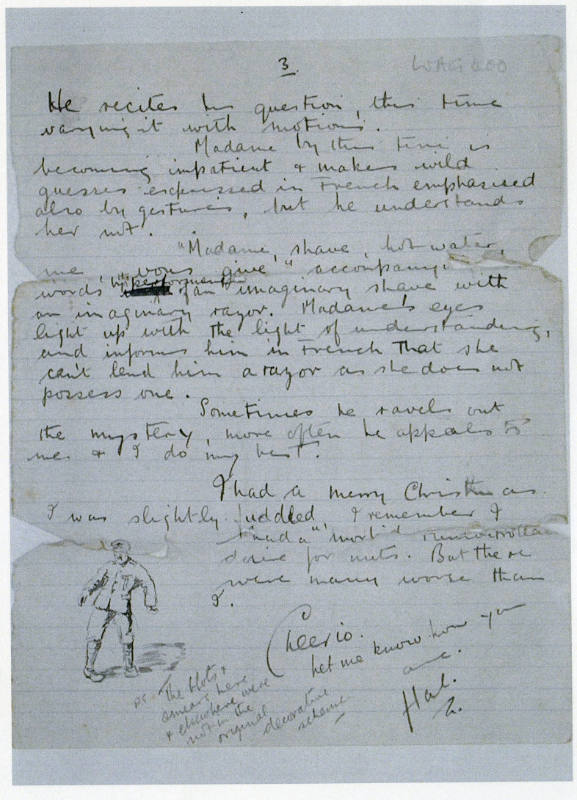 3
He recites his question, this time
varying it with motions.
Madame by this time is
becoming impatient & makes wild
guesses expressed in French emphasised
also by gestures, but he understands
her not.
"Madame, shave, hot water,
me vous give" accompany.
words with performent
of an imaginary shave with
an imaginary razor. Madame's eyes
light up with the light of understanding,
and informs him in French that she
can't lend him a razor as she does not
possess one.
Sometimes he ravels out
the mystery, more often he appeals to
me & I do my best
I had a merry Christmas.
I was slightly fuddled, I remember I
had a
desire for nuts. But there
were many worse than
I.
Cheerio.
Let me know how you
are.
Hal.
PS. The blots &
smears here
& elsewhere were
not in the
original decorative
scheme